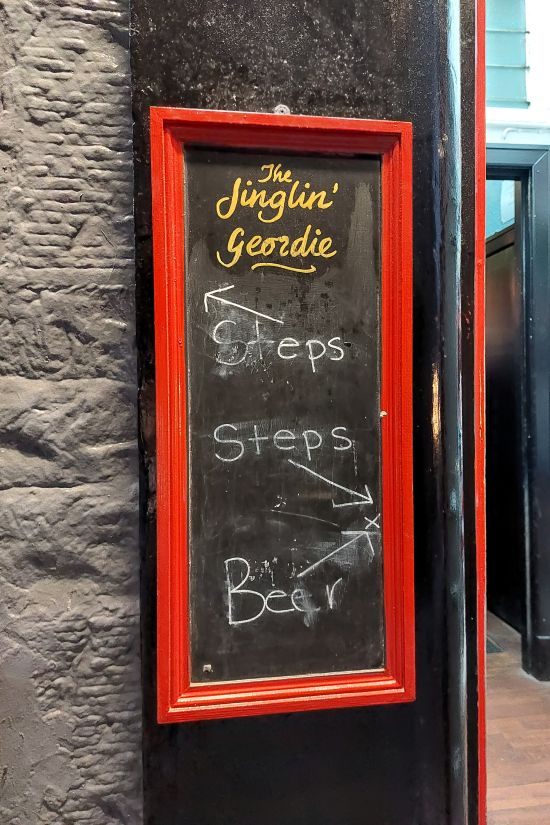 The
Jinglin'
Geordie
Steps
Steps
x
Beer